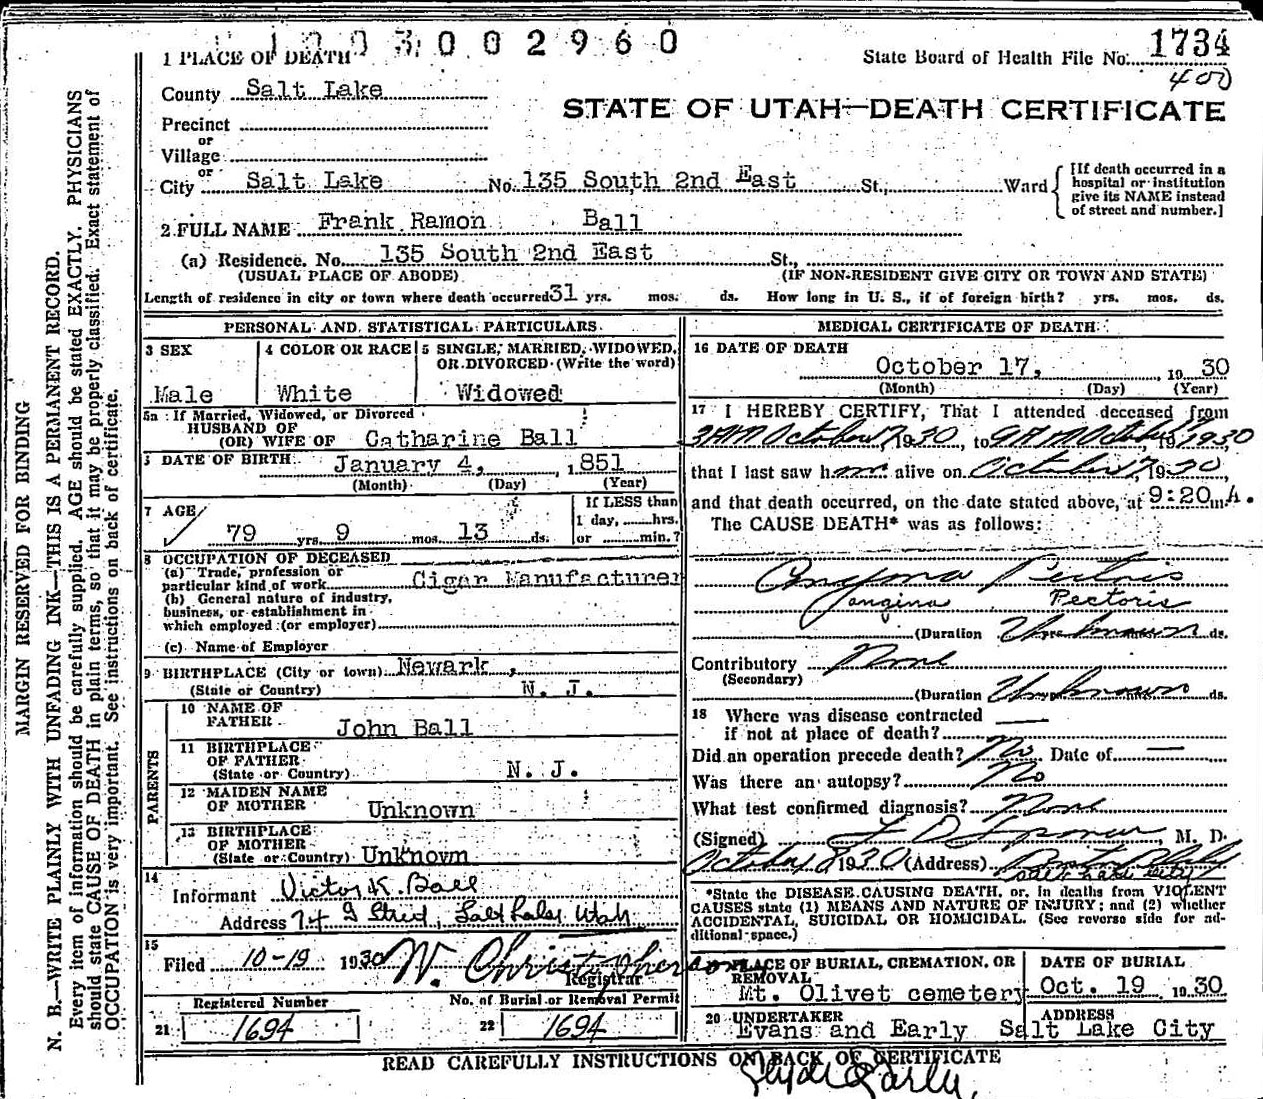 1203002960
1 PLACE OF DEATH
State Board of Health File No. 1734
400
County Salt Lake
STATE OF UTAH—DEATH CERTIFICATE
Precinct
or
Village
or
City Salt Lake No. 135 South 2nd East St., Ward
[If death occurred in a hospital or institution give its NAME instead of street and number.]
2 FULL NAME Frank Ramon Ball
(a) Residence. No. 135 South 2nd East St.,
(USUAL PLACE OF ABODE) (IF NON-RESIDENT GIVE CITY OR TOWN AND STATE)
Length of residence in city or town where death occurred 31 yrs. mos. ds. How long in U. S., if of foreign birth? yrs. mos. ds.
MARGIN RESERVED FOR BINDING
N. B.—WRITE PLAINLY WITH UNFADING INK—THIS IS A PERMANENT RECORD.
Every item of information should be carefully supplied. AGE should be stated EXACTLY. PHYSICIANS
should state CAUSE OF DEATH in plain terms, so that it may be properly classified. Exact statement of
OCCUPATION is very important. See instructions on back of certificate.
PERSONAL AND STATISTICAL PARTICULARS
3 SEX
Male
4 COLOR OR RACE
White
5 SINGLE, MARRIED, WIDOWED,
OR DIVORCED (Write the word)
Widowed
5a If Married, Widowed, or Divorced
HUSBAND OF
(OR) WIFE OF Catharine Ball
DATE OF BIRTH January 4, 1851
(Month) (Day) (Year)
7 AGE
79 yrs. 9 mos. 13 ds.
If LESS than
1 day, hrs.
or min.?
8 OCCUPATION OF DECEASED
(a) Trade, profession or
particular kind of work Cigar Manufacturer
(b) General nature of industry,
business, or establishment in
which employed (or employer)
(c) Name of Employer
9 BIRTHPLACE (City or town) Newark,
(State or Country) N. J.
PARENTS
10 NAME OF
FATHER John Ball
11 BIRTHPLACE
OF FATHER
(State or Country) N. J.
12 MAIDEN NAME
OF MOTHER Unknown
13 BIRTHPLACE
OF MOTHER
(State or Country) Unknown
14
Informant Victor K. Ball
Address 74 G Street, Salt Lake, Utah
15
Filed 10-19 1930 W. Christopherson
Registrar
Registered Number
21 1694
No. of Burial or Removal Permit
22 1694
MEDICAL CERTIFICATE OF DEATH
16 DATE OF DEATH
October 17, 1930
(Month) (Day) (Year)
17 I HEREBY CERTIFY, That I attended deceased from
3 AM October 17, 1930, to 9 AM October 17 1930
that I last saw him alive on October 17, 1930,
and that death occurred, on the date stated above, at 9:20 m A.
The CAUSE DEATH* was as follows:
Angina Pectoris
angina Pectoris
(Duration Unknown ds.
Contributory None
(Secondary)
(Duration Unknown ds.
18 Where was disease contracted
if not at place of death?
Did an operation precede death? No Date of —
Was there an autopsy? No
What test confirmed diagnosis? None
(Signed) M. D.
October 1930 (Address)
Salt Lake City
*State the DISEASE CAUSING DEATH, or, in deaths from VIOLENT
CAUSES state (1) MEANS AND NATURE OF INJURY; and (2) whether
ACCIDENTAL, SUICIDAL OR HOMICIDAL. (See reverse side for ad-
ditional space.)
PLACE OF BURIAL, CREMATION, OR
REMOVAL
Mt. Olivet cemetery
DATE OF BURIAL
Oct. 19 1930
20 UNDERTAKER
Evans and Early
ADDRESS
Salt Lake City
READ CAREFULLY INSTRUCTIONS ON BACK OF CERTIFICATE
Clyde Early.